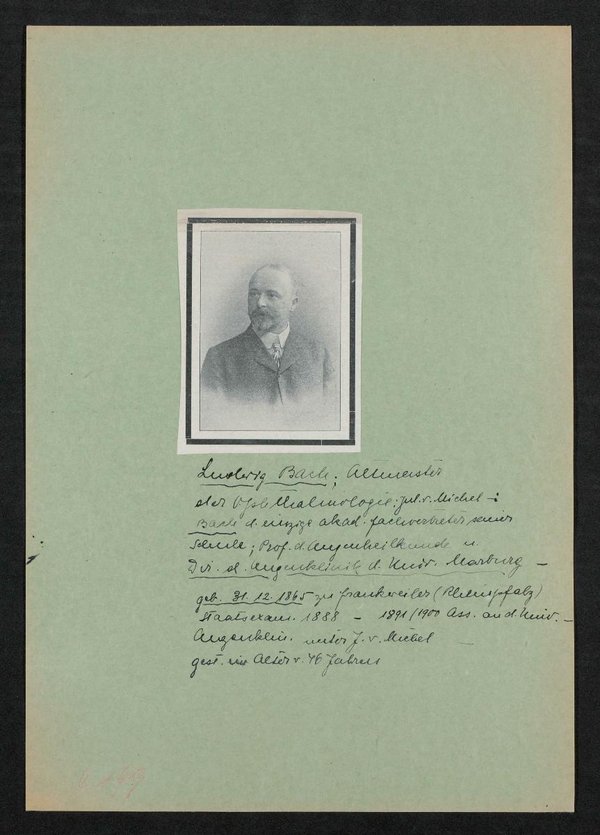 Ludwig Bach; Altmeister
der Ophthalmologie: Jul. v. Michel -:
Bach d. einzige akad. Fachvertreter seiner
Schule; Prof. d. Augenheilkunde u.
Dir. d. Augenklinik d. Univ. Marburg -
geb. 31.12.1865 zu Frankweiler (Rheinpfalz)
Staatsexam. 1888 - 1891/1900 Ass. an d. Univ. -
Augenklin. unter J. v. Michel -
gest. im Alter v. 46 Jahren